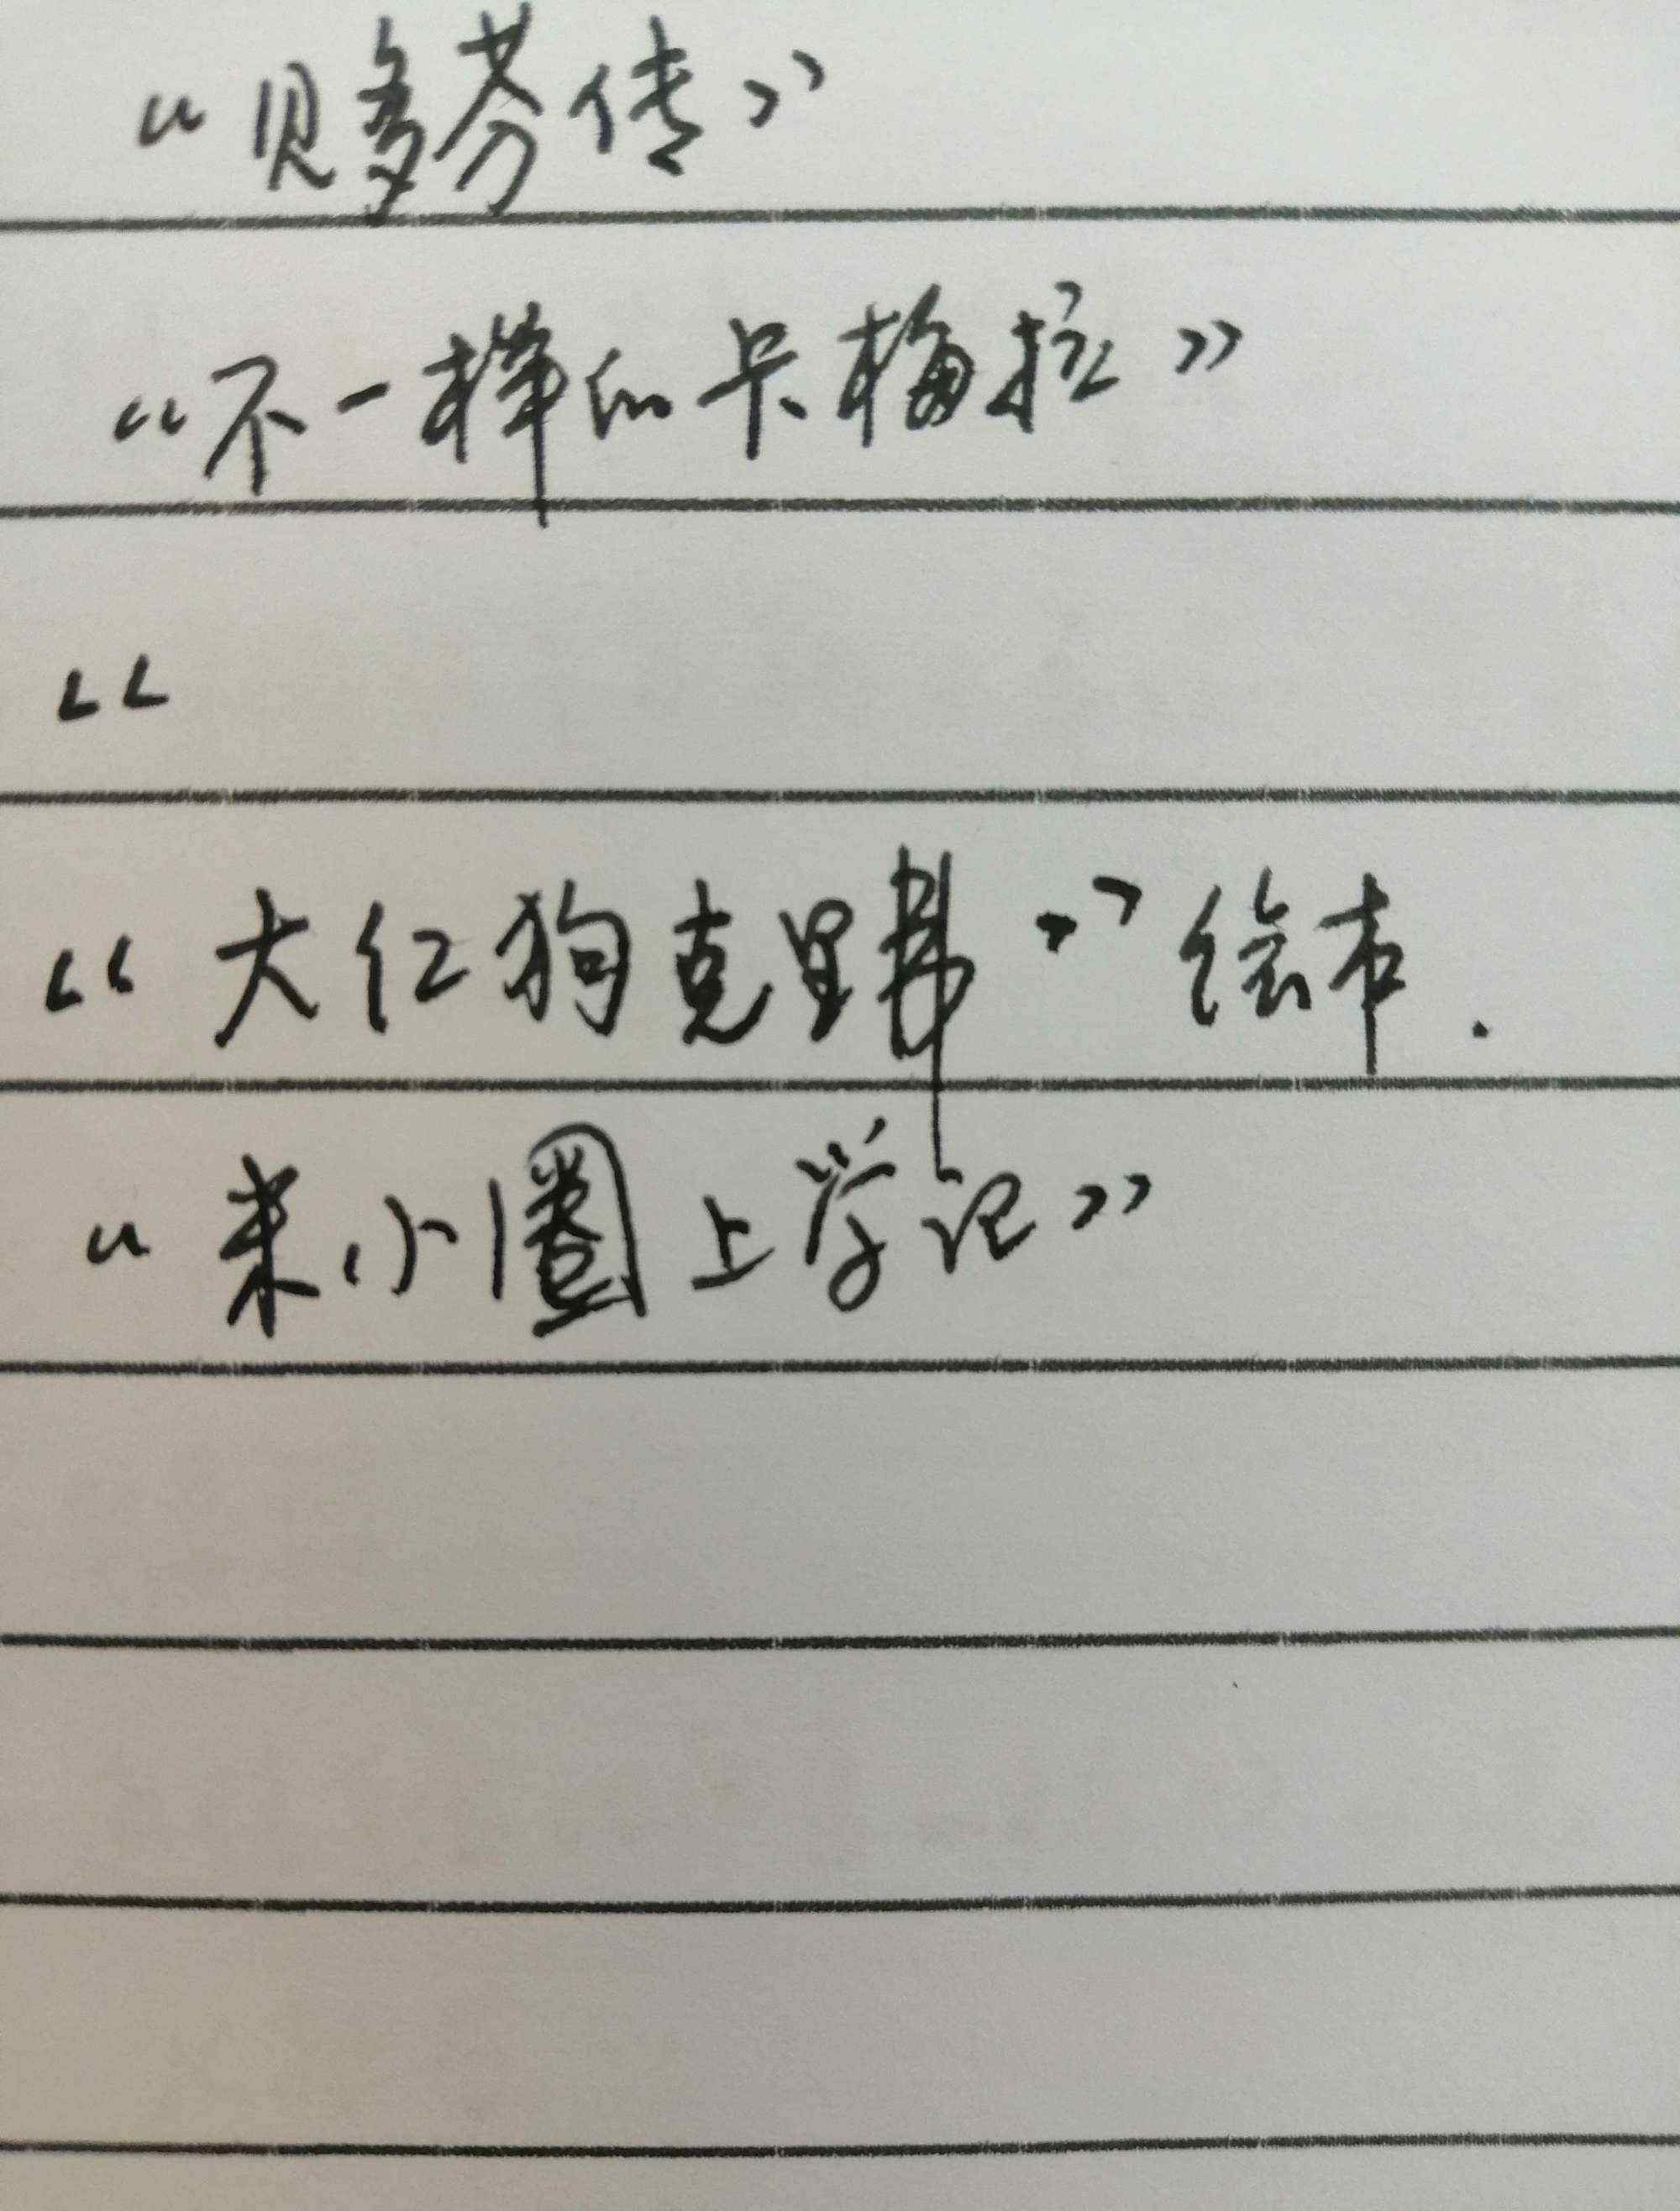 《贝多芬传》
《不一样的卡梅拉》
《
《大红狗克里弗》绘本.
《米小圈上学记》